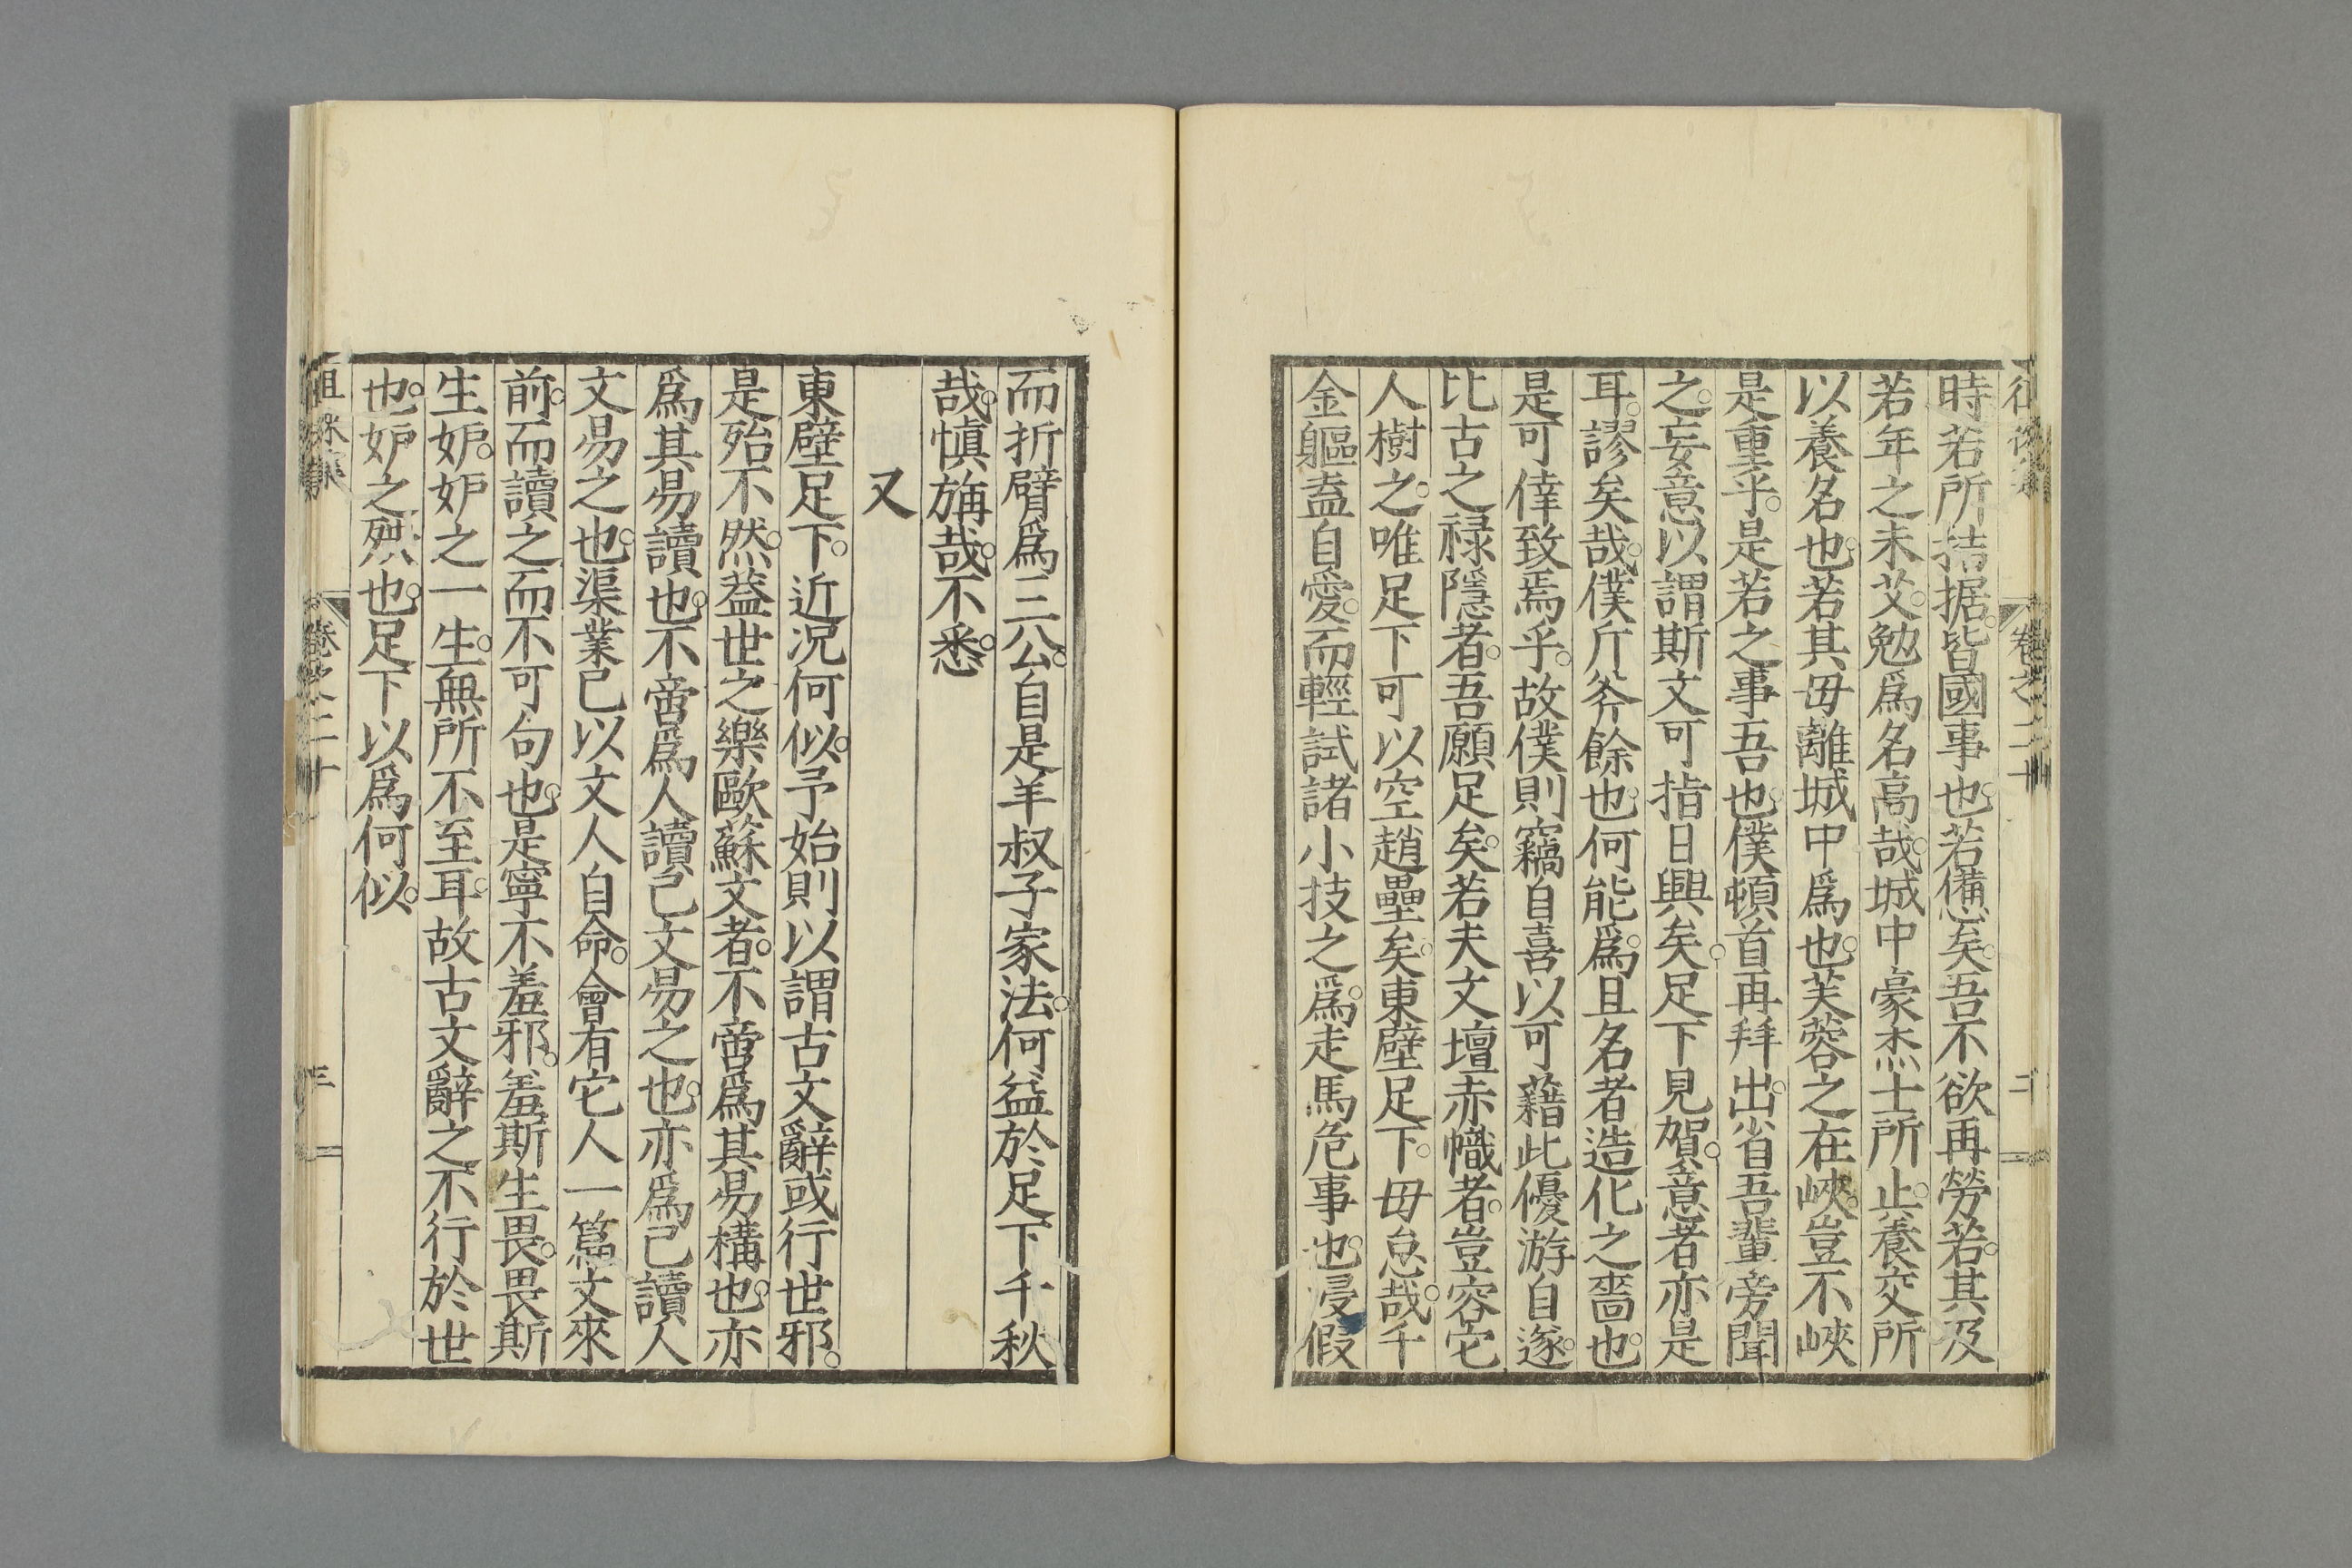 時若所拮据。皆國事也。若備矣。吾不欲再勞若。其及
若年之未艾。勉爲名高哉。城中豪杰士所止。養交所
以養名也。若其毋離城中爲也。芙蓉之在峽。豈不峽
是重乎。是若之事吾也。僕頓首再拜。出省吾輩旁聞
之。妄意以謂斯文可指日興矣。足下見賀。意者亦是
耳。謬矣哉。僕斤斧餘也。何能爲。且名者造化之嗇也。
是可倖致焉乎。故僕則竊自喜以可藉此優游自遂。
比古之祿隱者。吾願足矣。若夫文壇赤幟者。豈容它
人樹之。唯足下可以空趙壘矣。東壁足下。毋怠哉。千
金軀盍自愛。而輕試諸小技之爲。走馬危事也。浸假
而折臂爲三公。自是羊叔子家法。何益於足下千秋
哉。愼旃哉。不悉。
又
東壁足下。近況何似。予始則以謂古文辭或行世邪。
是殆不然。蓋世之樂歐蘇文者。不啻爲其易構也。亦
爲其易讀也。不啻爲人讀己文易之也。亦爲己讀人
文易之也。渠業已以文人自命。會有它人一篇文來
前。而讀之而不可句也。是寧不羞邪。羞斯生畏。畏斯
生妒。妒之一生。無所不至耳。故古文辭之不行於世
也。妒之殃也。足下以爲何似。
卷之二十
三
卷之二十
二